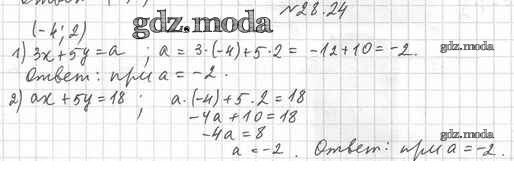 №28.24
(-4; 2)
gdz.moda
1) 3x+5y=a ; a = 3·(-4)+5·2 = -12+10=-2.
gdz.moda
Ответ: при a = -2.
2) ax + 5y = 18 ; a·(-4)+5·2=18
-4a+10=18
-4a=8
gdz.moda
a = -2. Ответ: при a = -2.